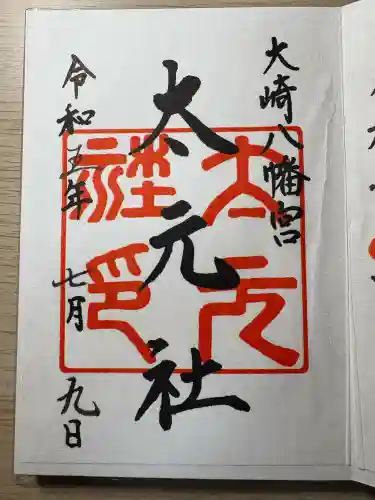 大崎八幡宮
太元社
令和五年 七月 九日
太元社印